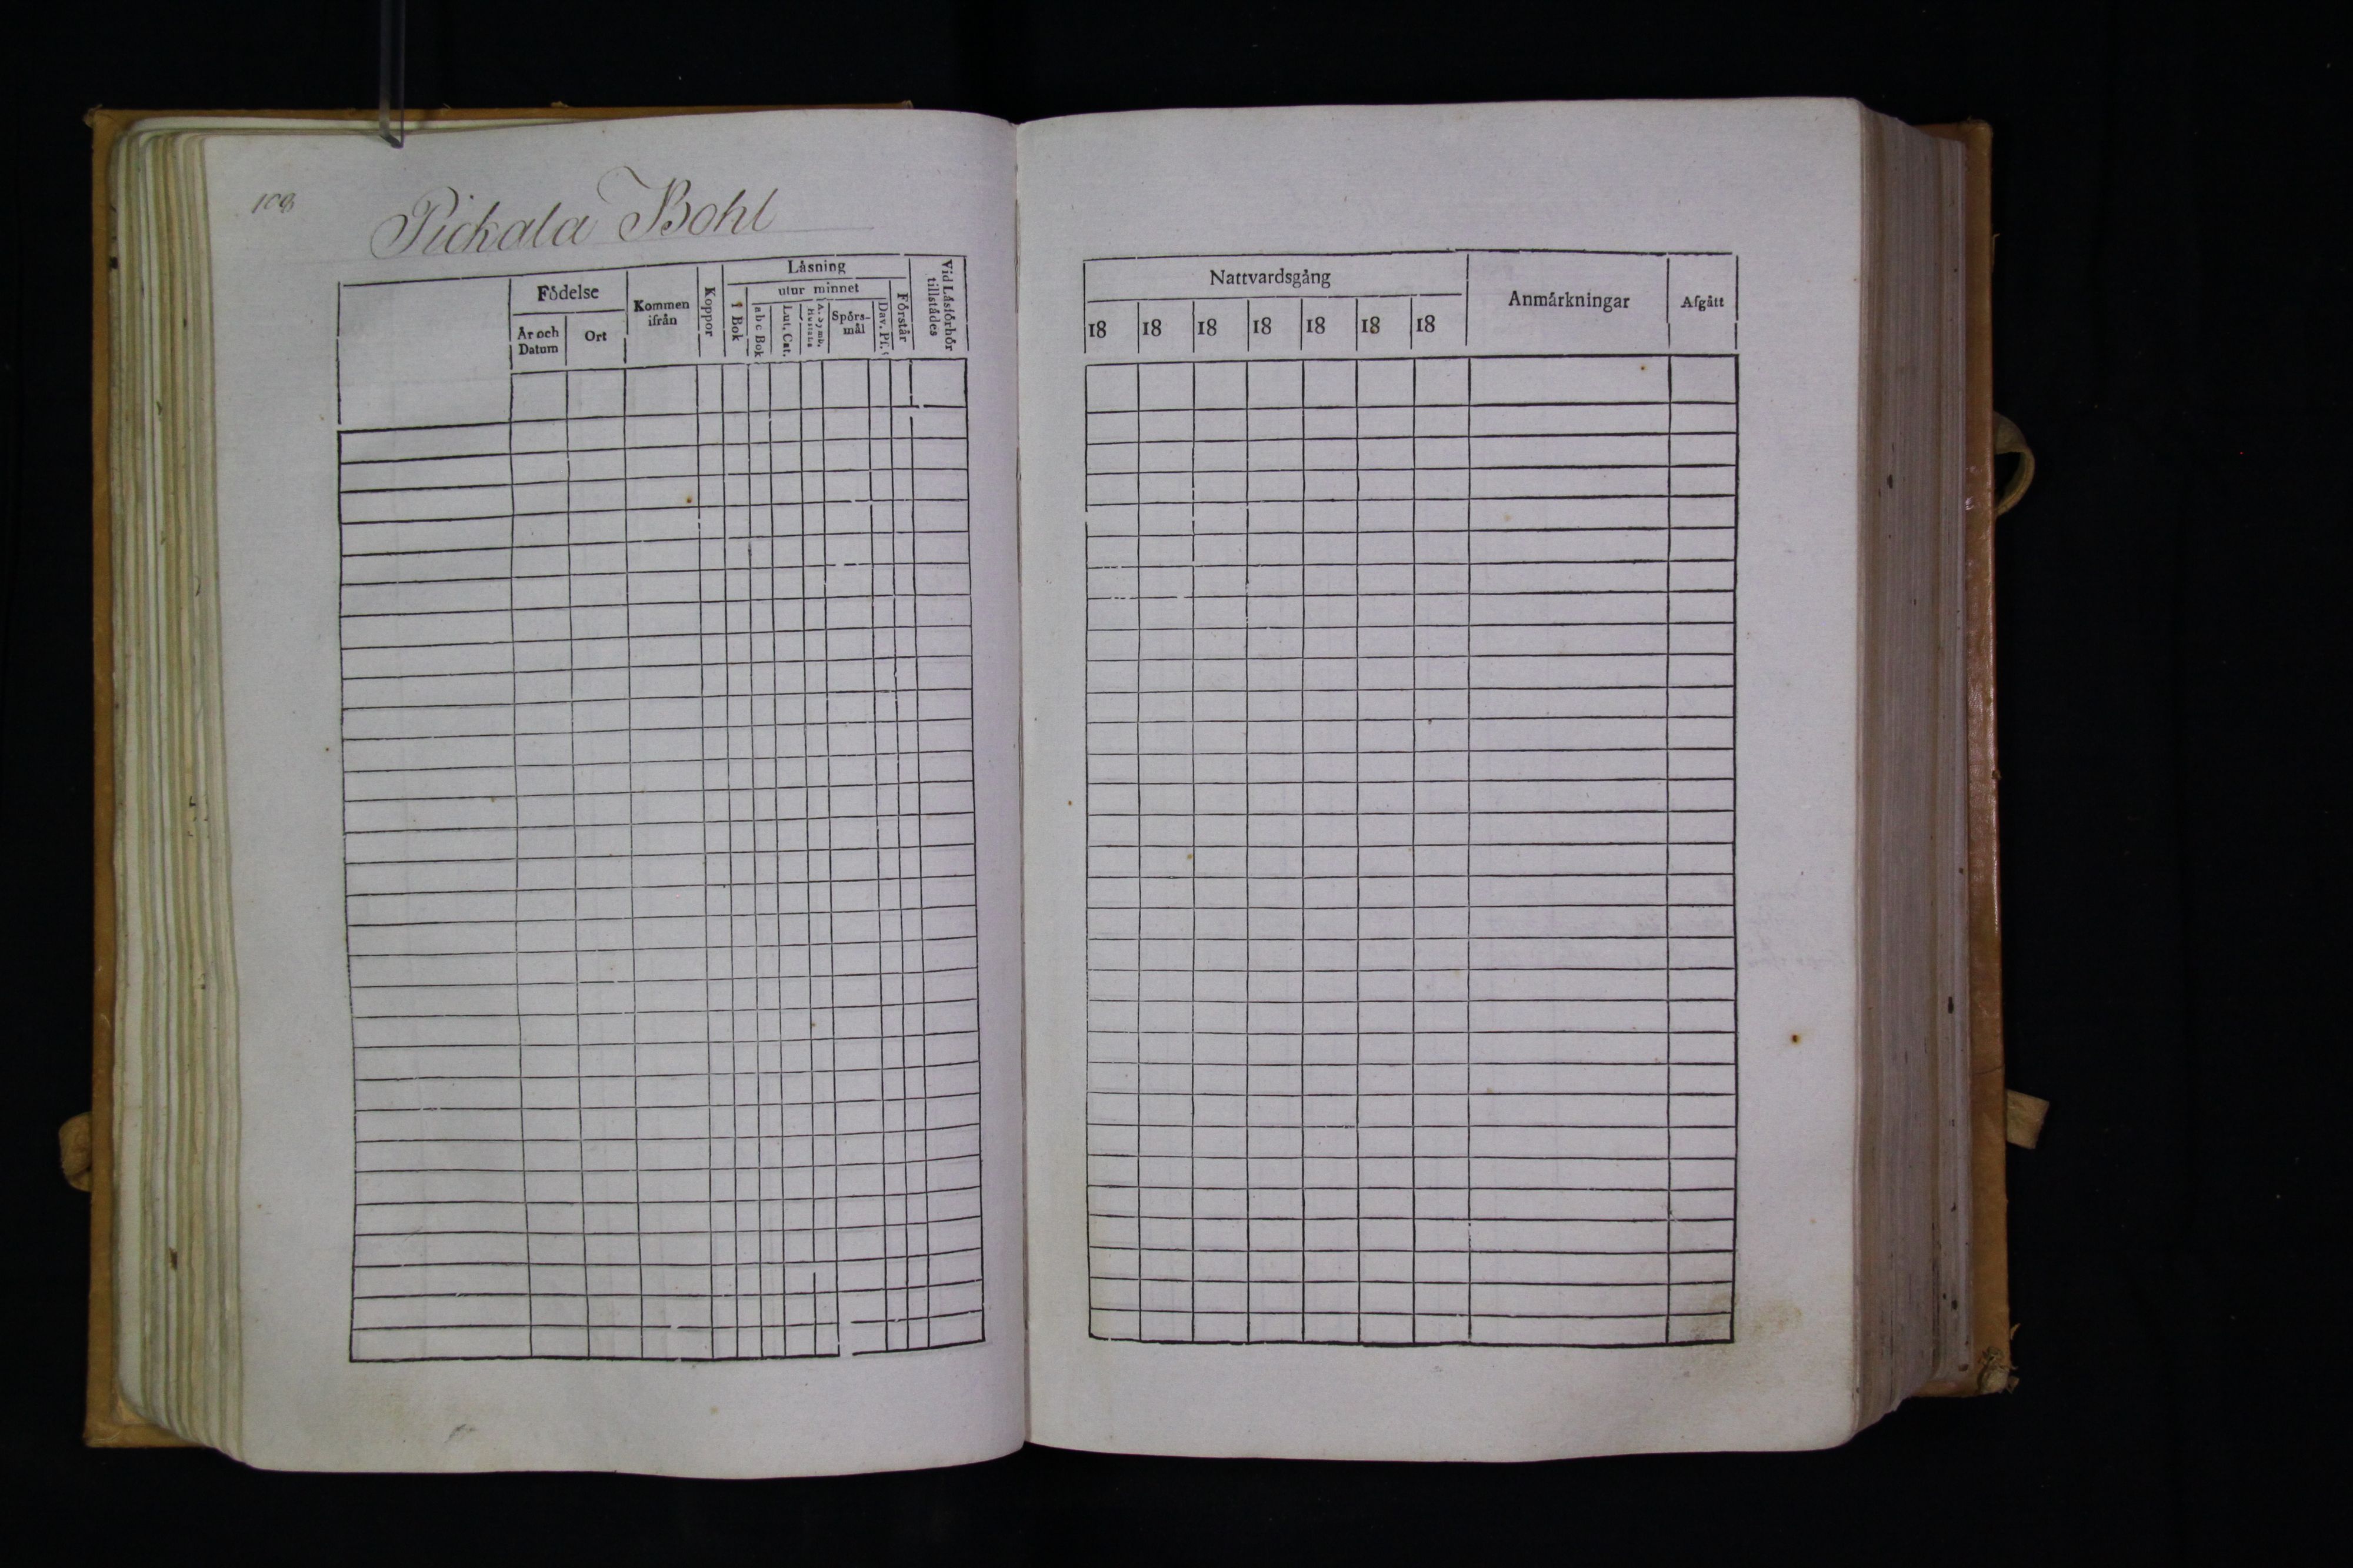 108
Pickala Bohl
Födelse
År och Datum
Ort
Kommen ifrån
Koppor
Läsning
i Bok
utur minnet
abc Bok
Lut. Cat.
A. Symb.
Spörsmål
Dav. Ps.
Förstår
Vid Läsförhör tillstädes
Nattvardsgång
18 18 18 18 18 18 18
Anmärkningar
Afgått